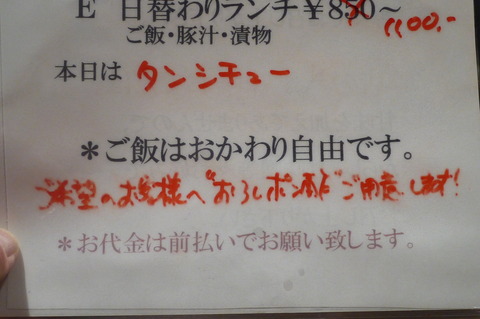 E 日替わりランチ￥850～ 1100.-
ご飯・豚汁・漬物
本日は タンシチュー
＊ご飯はおかわり自由です。
ご希望のお客様へ“おろしポン酢”ご用意します!
＊お代金は前払いでお願い致します。